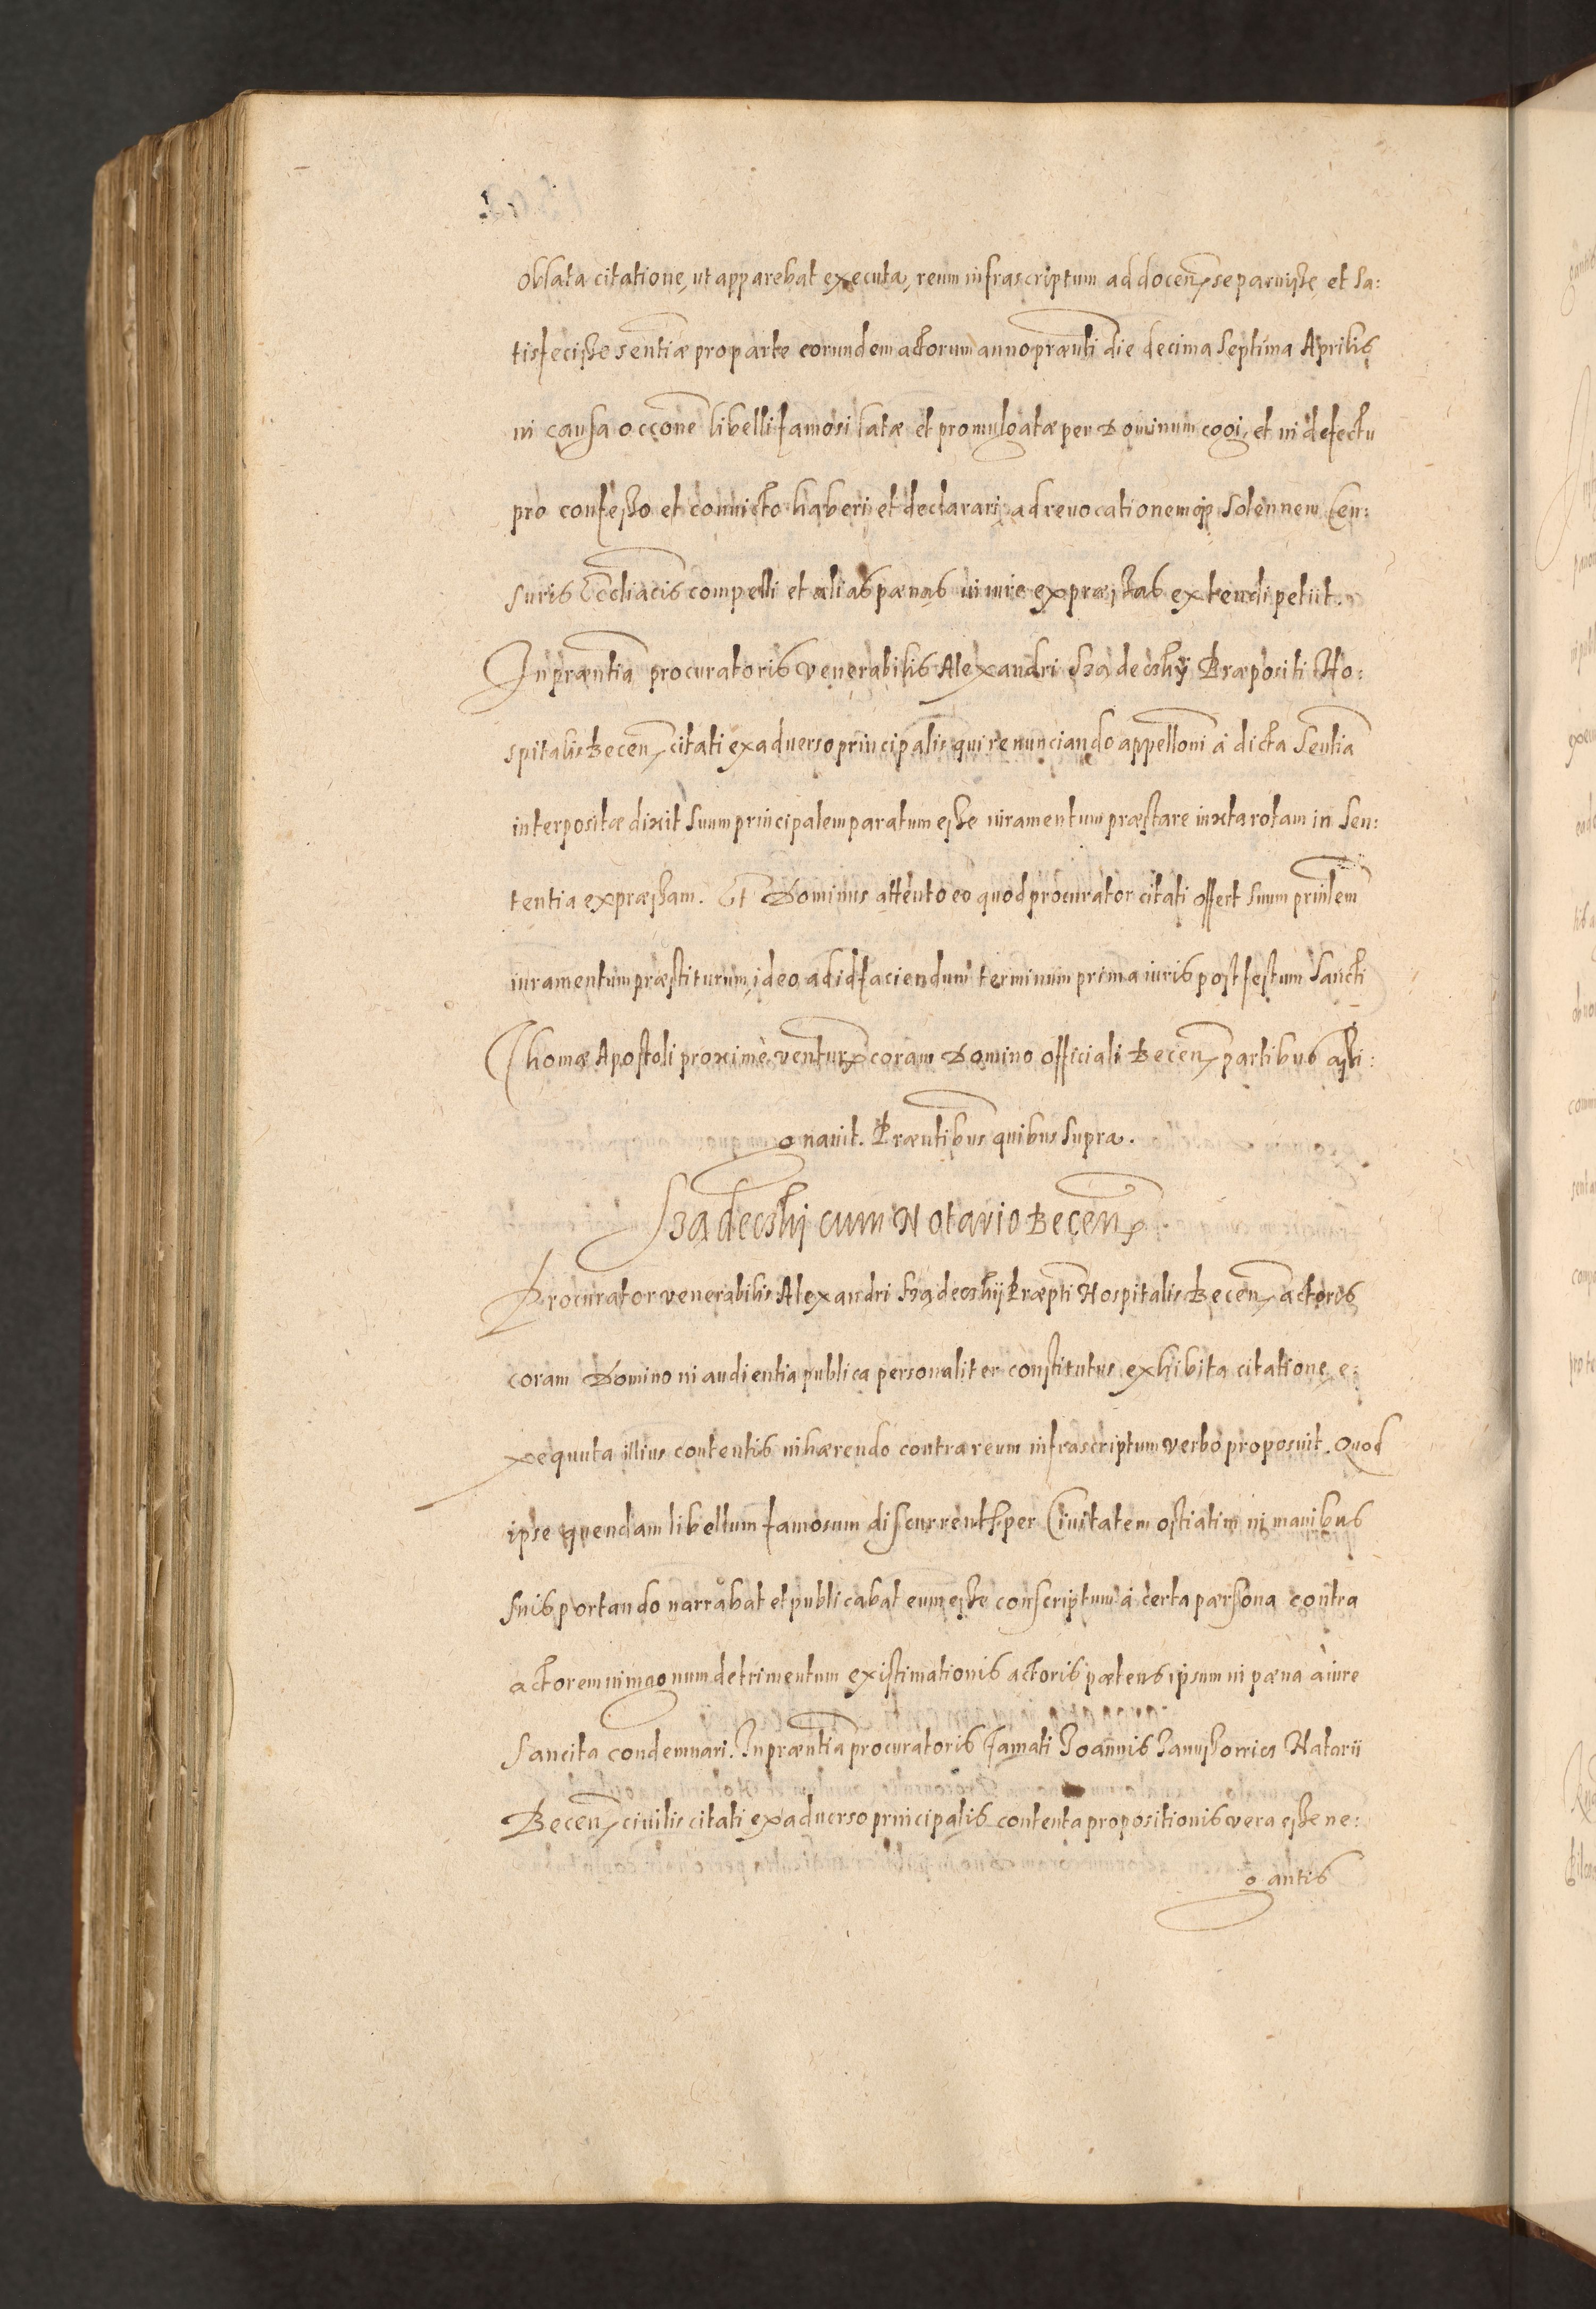 oblata citatione, ut apparebat executa, reum infrascriptum ad docen se paruisse, et sa:
tisfecisse sentiæ pro parte eorundem actorum anno præñti die decima septima Aprilis
in causa occone libelli famosi latæ et promulgatæ per Dominum cogi, et in defectu
pro confesso et convicto haberi et declarari, ad revocationemq; solennem Cen:
suris Ecclíacis compelli et alias pænas in iure expræssas extendi petiit.
In præntia procuratoris venerabilis Alexandri Szadecskÿ Præpositi Ho:
spitalis Becen citati ex adverso principalis, qui renunciando appelloni à dicta sentia
interpositæ dixit suum principalem paratum esse iuramentum præstare iuxta rotam in sen:
tentia expræssam. Et Dominus attento eo quod procurator citati offert suum prinlem
iuramentum præstiturum, ideo ad id faciendum terminum prima iuris post festum Sancti
Thomæ Apostoli proximè ventur coram Domino officiali Becen partibus assi:
gnavit. Præntibus quibus supra.
Szadecskij cum Notario Becen
Procurator venerabilis Alexandri Szadecskij Præpti Hospitalis Becen actoris
coram Domino in audientia publica personaliter constitutus exhibita citatione e:
xequuta illius contentis inhærendo contra reum infrascriptum verbo proposuit. Quod
ipse quendam libellum famosum discurrent per Civitatem ostiatim in manibus
suis portando narrabat et publicabat eum esse conscriptum à certa pærsona contra
actorem in magnum detrimentum existimationis actoris pætens ipsum in pæna à iure
sancita condemnari. In præntia procuratoris Famati Joannis Notarii
Becen civilis citati ex adverso principalis contenta propositionis vera esse ne:
gantis